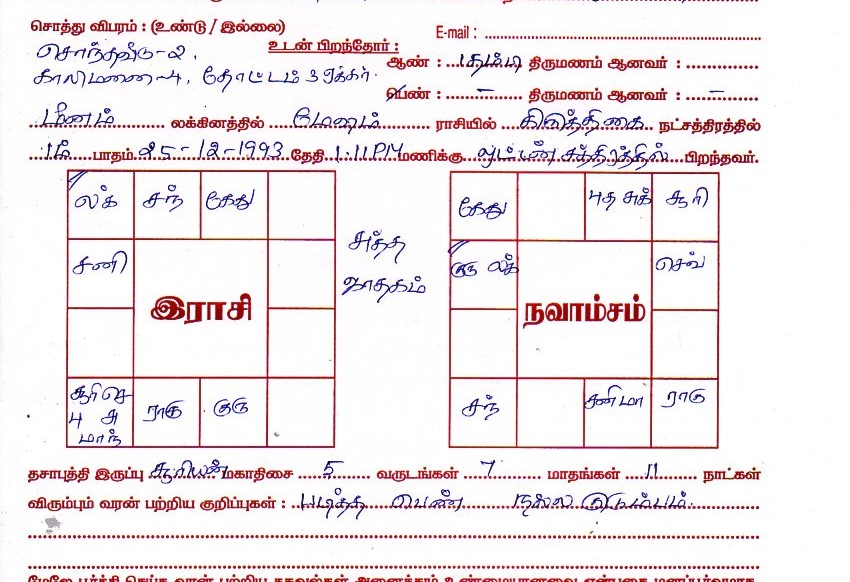 சொத்து விபரம் : (உண்டு / இல்லை)
E-mail :
சொந்தவீடு-2,
உடன் பிறந்தோர் :
காலிமனை-4, தோட்டம் 3 ஏக்கர்.
ஆண் : தம்பி திருமணம் ஆனவர் :
பெண் : – திருமணம் ஆனவர் : –
மீனம் லக்கினத்தில் மேஷம் ராசியில் கிருத்திகை நட்சத்திரத்தில்
1ம் பாதம் 25-12-1993 தேதி 1:11 PM மணிக்கு பிறந்தவர்.
லக் சந் கேது
சனி
இராசி
சூரி செ
4 சு
மாந் ராகு குரு
சுத்த
ஜாதகம்
கேது புத சுக் சூரி
குரு லக் செவ்
நவாம்சம்
சந் சனி மா ராகு
தசாபுத்தி இருப்பு சூரியன் மகாதிசை 5 வருடங்கள் 7 மாதங்கள் 11 நாட்கள்
விரும்பும் வரன் பற்றிய குறிப்புகள் : படித்த பெண் நல்ல குடும்பம்.